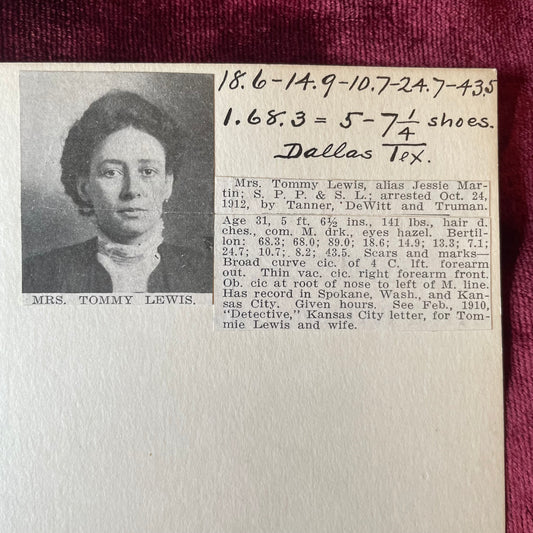 18.6-14.9-10.7-24.7-43.5
1.68.3 = 5-7 1/4 shoes.
Dallas Tex.
Mrs. Tommy Lewis, alias Jessie Mar-
tin; S. P. P. & S. L.; arrested Oct. 24,
1912, by Tanner, DeWitt and Truman.
Age 31, 5 ft. 6½ ins., 141 lbs., hair d.
ches., com. M. drk., eyes hazel. Bertil-
lon: 68.3; 68.0; 89.0; 18.6; 14.9; 13.3; 7.1;
24.7; 10.7; 8.2; 43.5. Scars and marks—
Broad curve cic. of 4 C. lft. forearm
out. Thin vac. cic. right forearm front.
Ob. cic at root of nose to left of M. line.
Has record in Spokane, Wash., and Kan-
sas City. Given hours. See Feb., 1910,
"Detective," Kansas City letter, for Tom-
mie Lewis and wife.
MRS. TOMMY LEWIS.